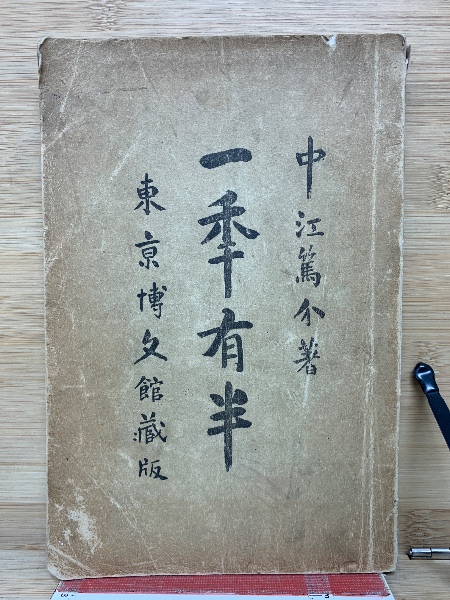 中江篤介著
一年有半
東京博文館藏版